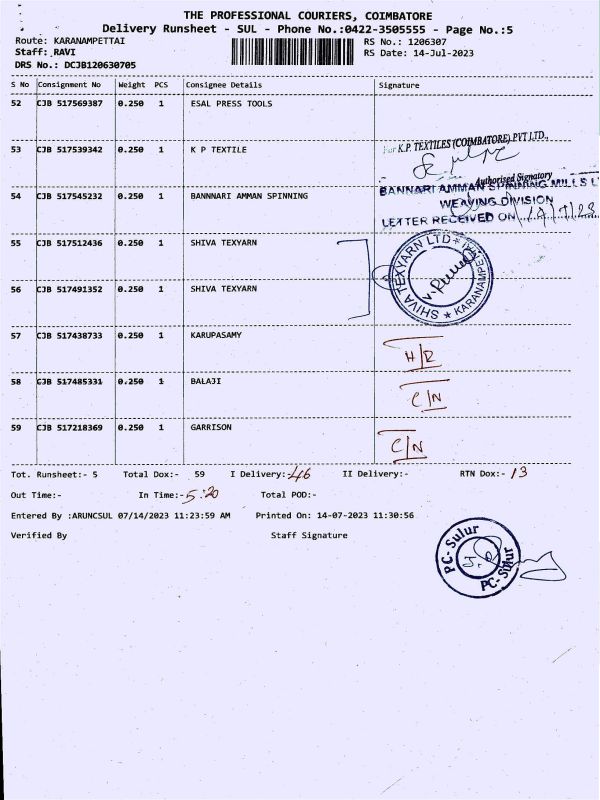 THE PROFESSIONAL COURIERS, COIMBATORE
Delivery Runsheet - SUL - Phone No.:0422-3505555 - Page No.:5
Route: KARANAMPETTAI RS No.: 1206307
Staff: RAVI RS Date: 14-Jul-2023
DRS No.: DCJB120630705
S No Consignment No Weight PCS Consignee Details Signature
52 CJB 517569387 0.250 1 ESAL PRESS TOOLS
53 CJB 517539342 0.250 1 K P TEXTILE
For K.P. TEXTILES (COIMBATORE) PVT LTD.,
Authorised Signatory
54 CJB 517545232 0.250 1 BANNNARI AMMAN SPINNING
BANNARI AMMAN SPINNING MILLS L
WEAVING DIVISION
LETTER RECEIVED ON
55 CJB 517512436 0.250 1 SHIVA TEXYARN
SHIVA TEXYARN LTD ★ KARANAMPE
56 CJB 517491352 0.250 1 SHIVA TEXYARN
57 CJB 517438733 0.250 1 KARUPASAMY
58 CJB 517485331 0.250 1 BALAJI C/N
59 CJB 517218369 0.250 1 GARRISON C/N
Tot. Runsheet:- 5 Total Dox:- 59 I Delivery:-46 II Delivery:- RTN Dox:- 13
Out Time:- In Time:-5:20 Total POD:-
Entered By :ARUNCSUL 07/14/2023 11:23:59 AM Printed On: 14-07-2023 11:30:56
Verified By Staff Signature
PC-Sulur
PC-Sulur